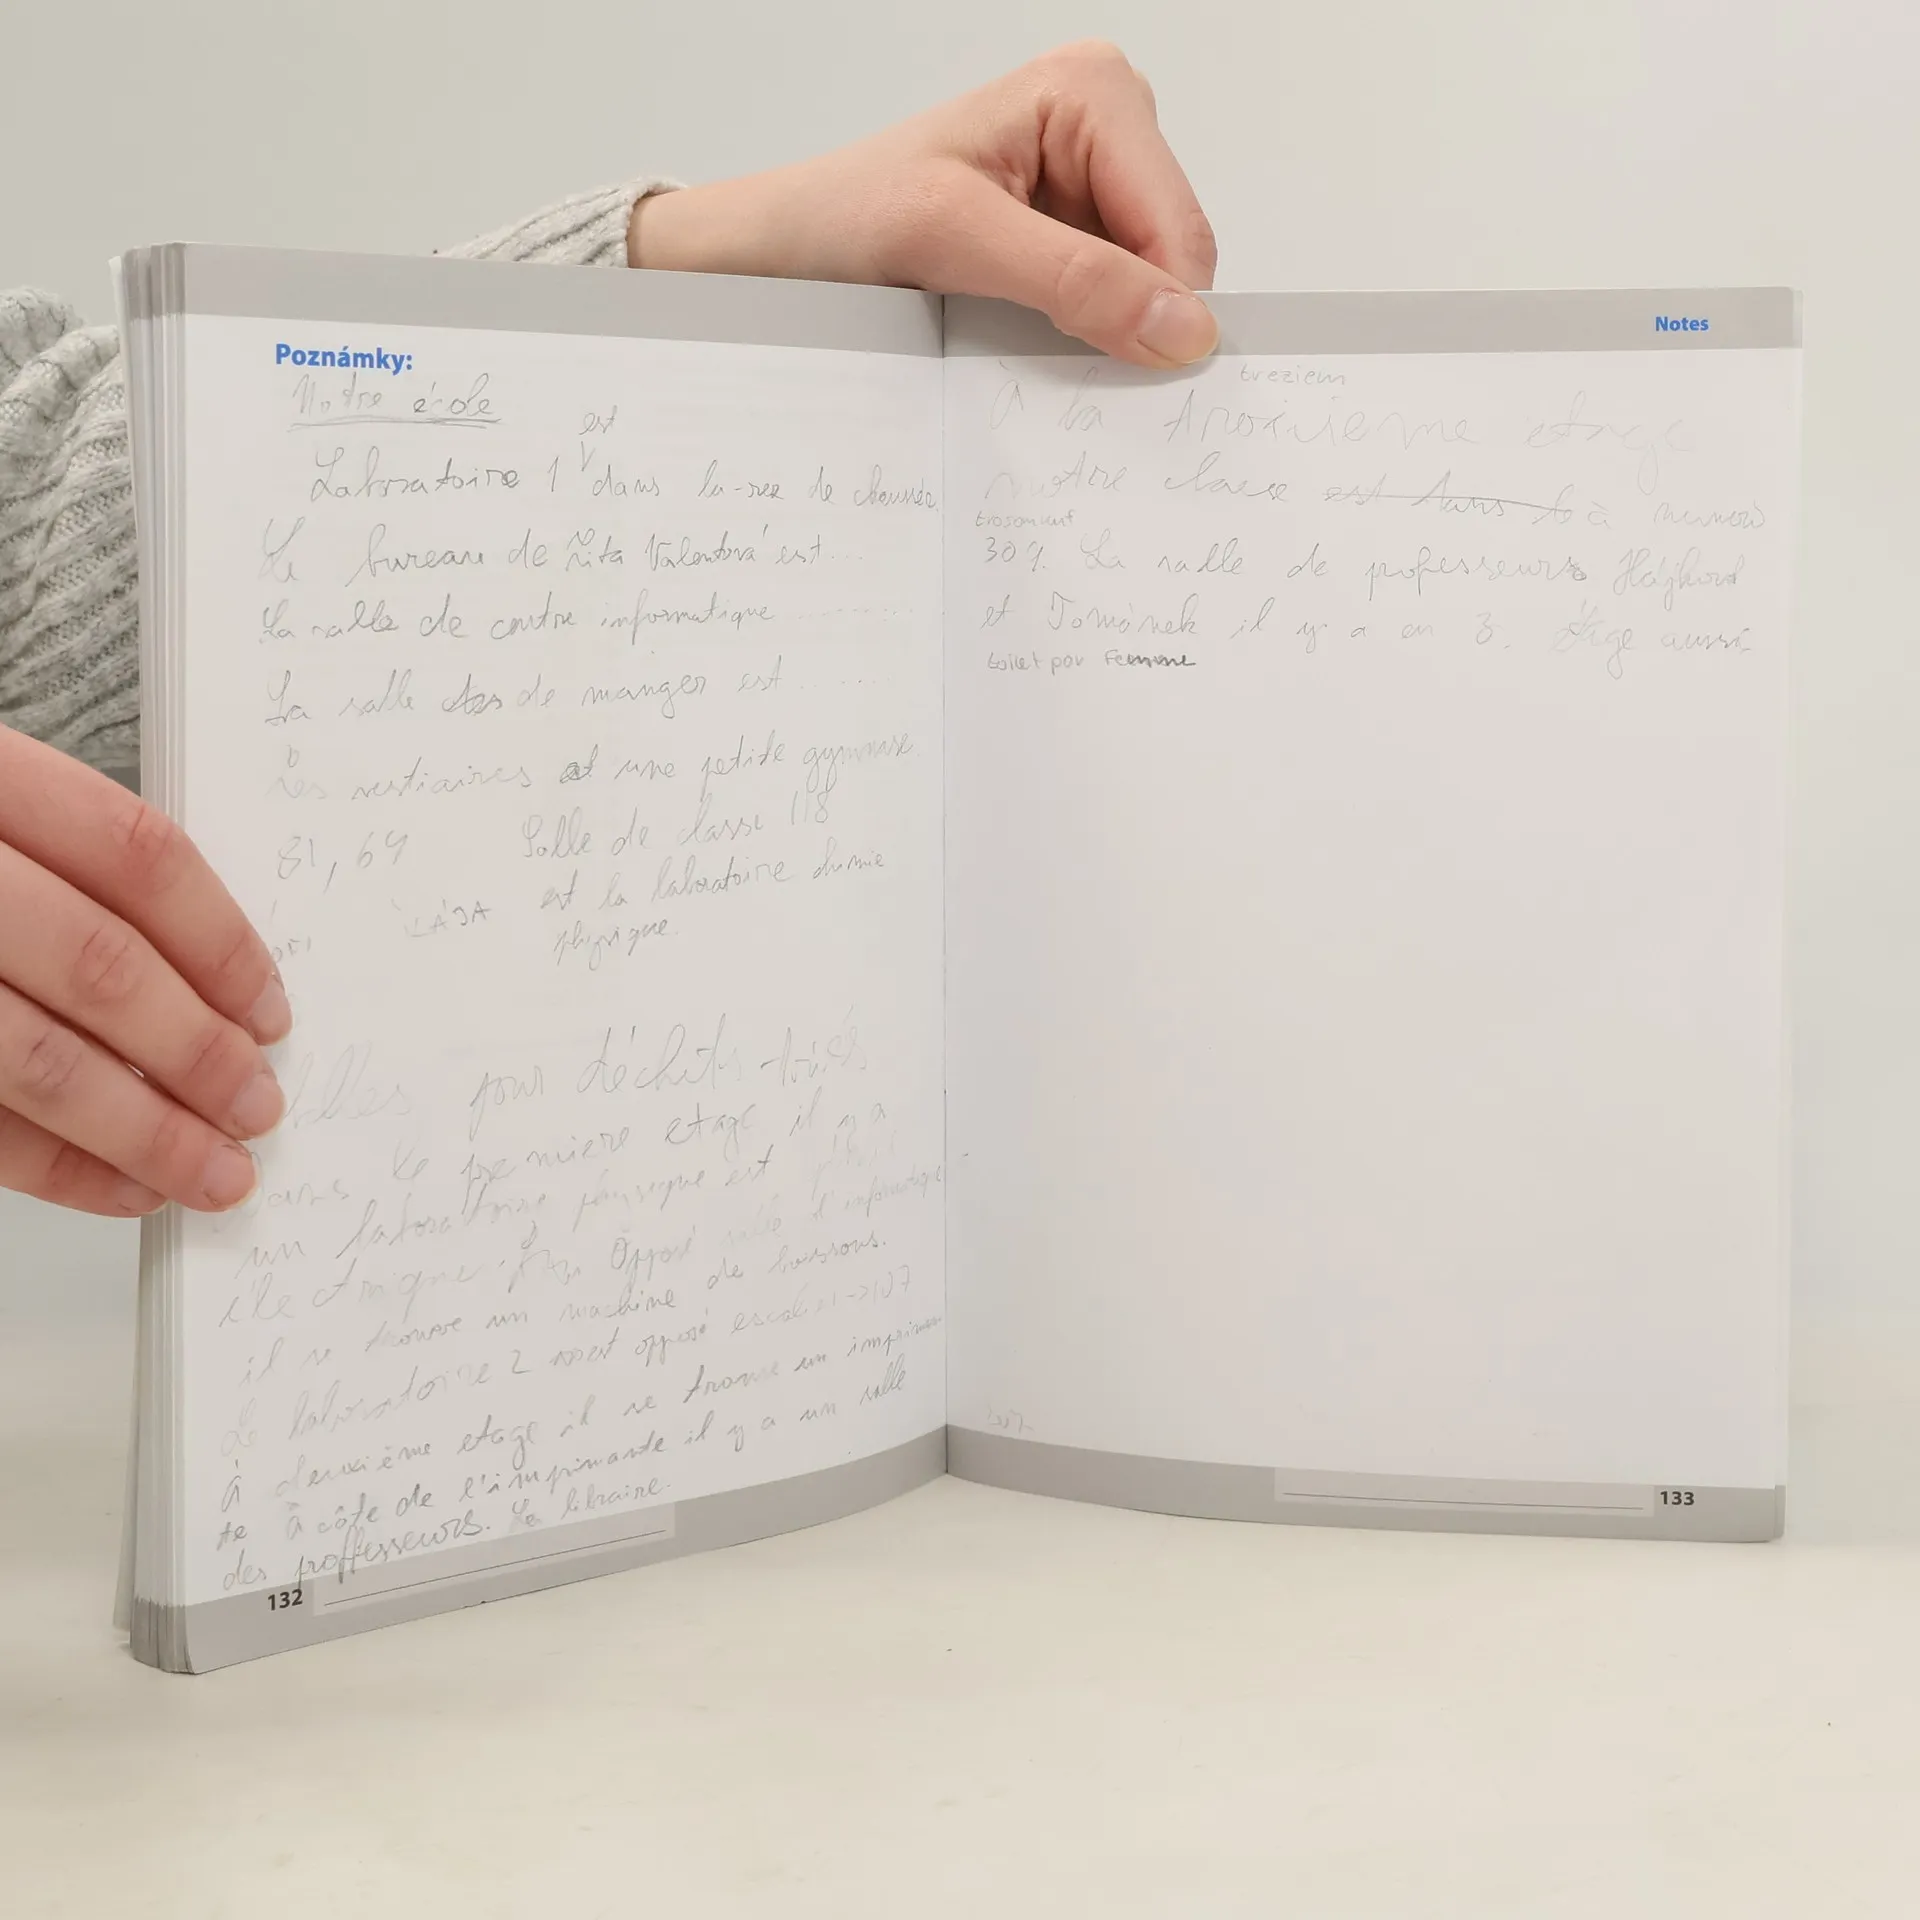 Poznámky:
Notre école
est
Laboratoire 1 dans la-rez de chaussée.
Le bureau de Rita Valentová est...
La salle de centre informatique ..........
La salle de manger est ......
Les vestiaires et une petite gymnase.
81, 69 Salle de classe 118
est la laboratoire chimie
KÁJA
physique.
pour déchets triés
Dans le premiere etage il y a
un laboratoire physique est
électrique. Opposé salle d'informatique
il se trouve un machine de boissons.
Le laboratoire 2 opposé
À deuxième etage il se trouve un impriman
te à côte de l'imprimante il y a un salle
des proffesseurs. Le libraire.
132
Notes
treziem
À la troisieme etage
notre classe est dans à numero
trosankuf
307. La salle de professeurs Hájková
et Tománek il y a en 3. étage aussi
toilet pou Femme
133